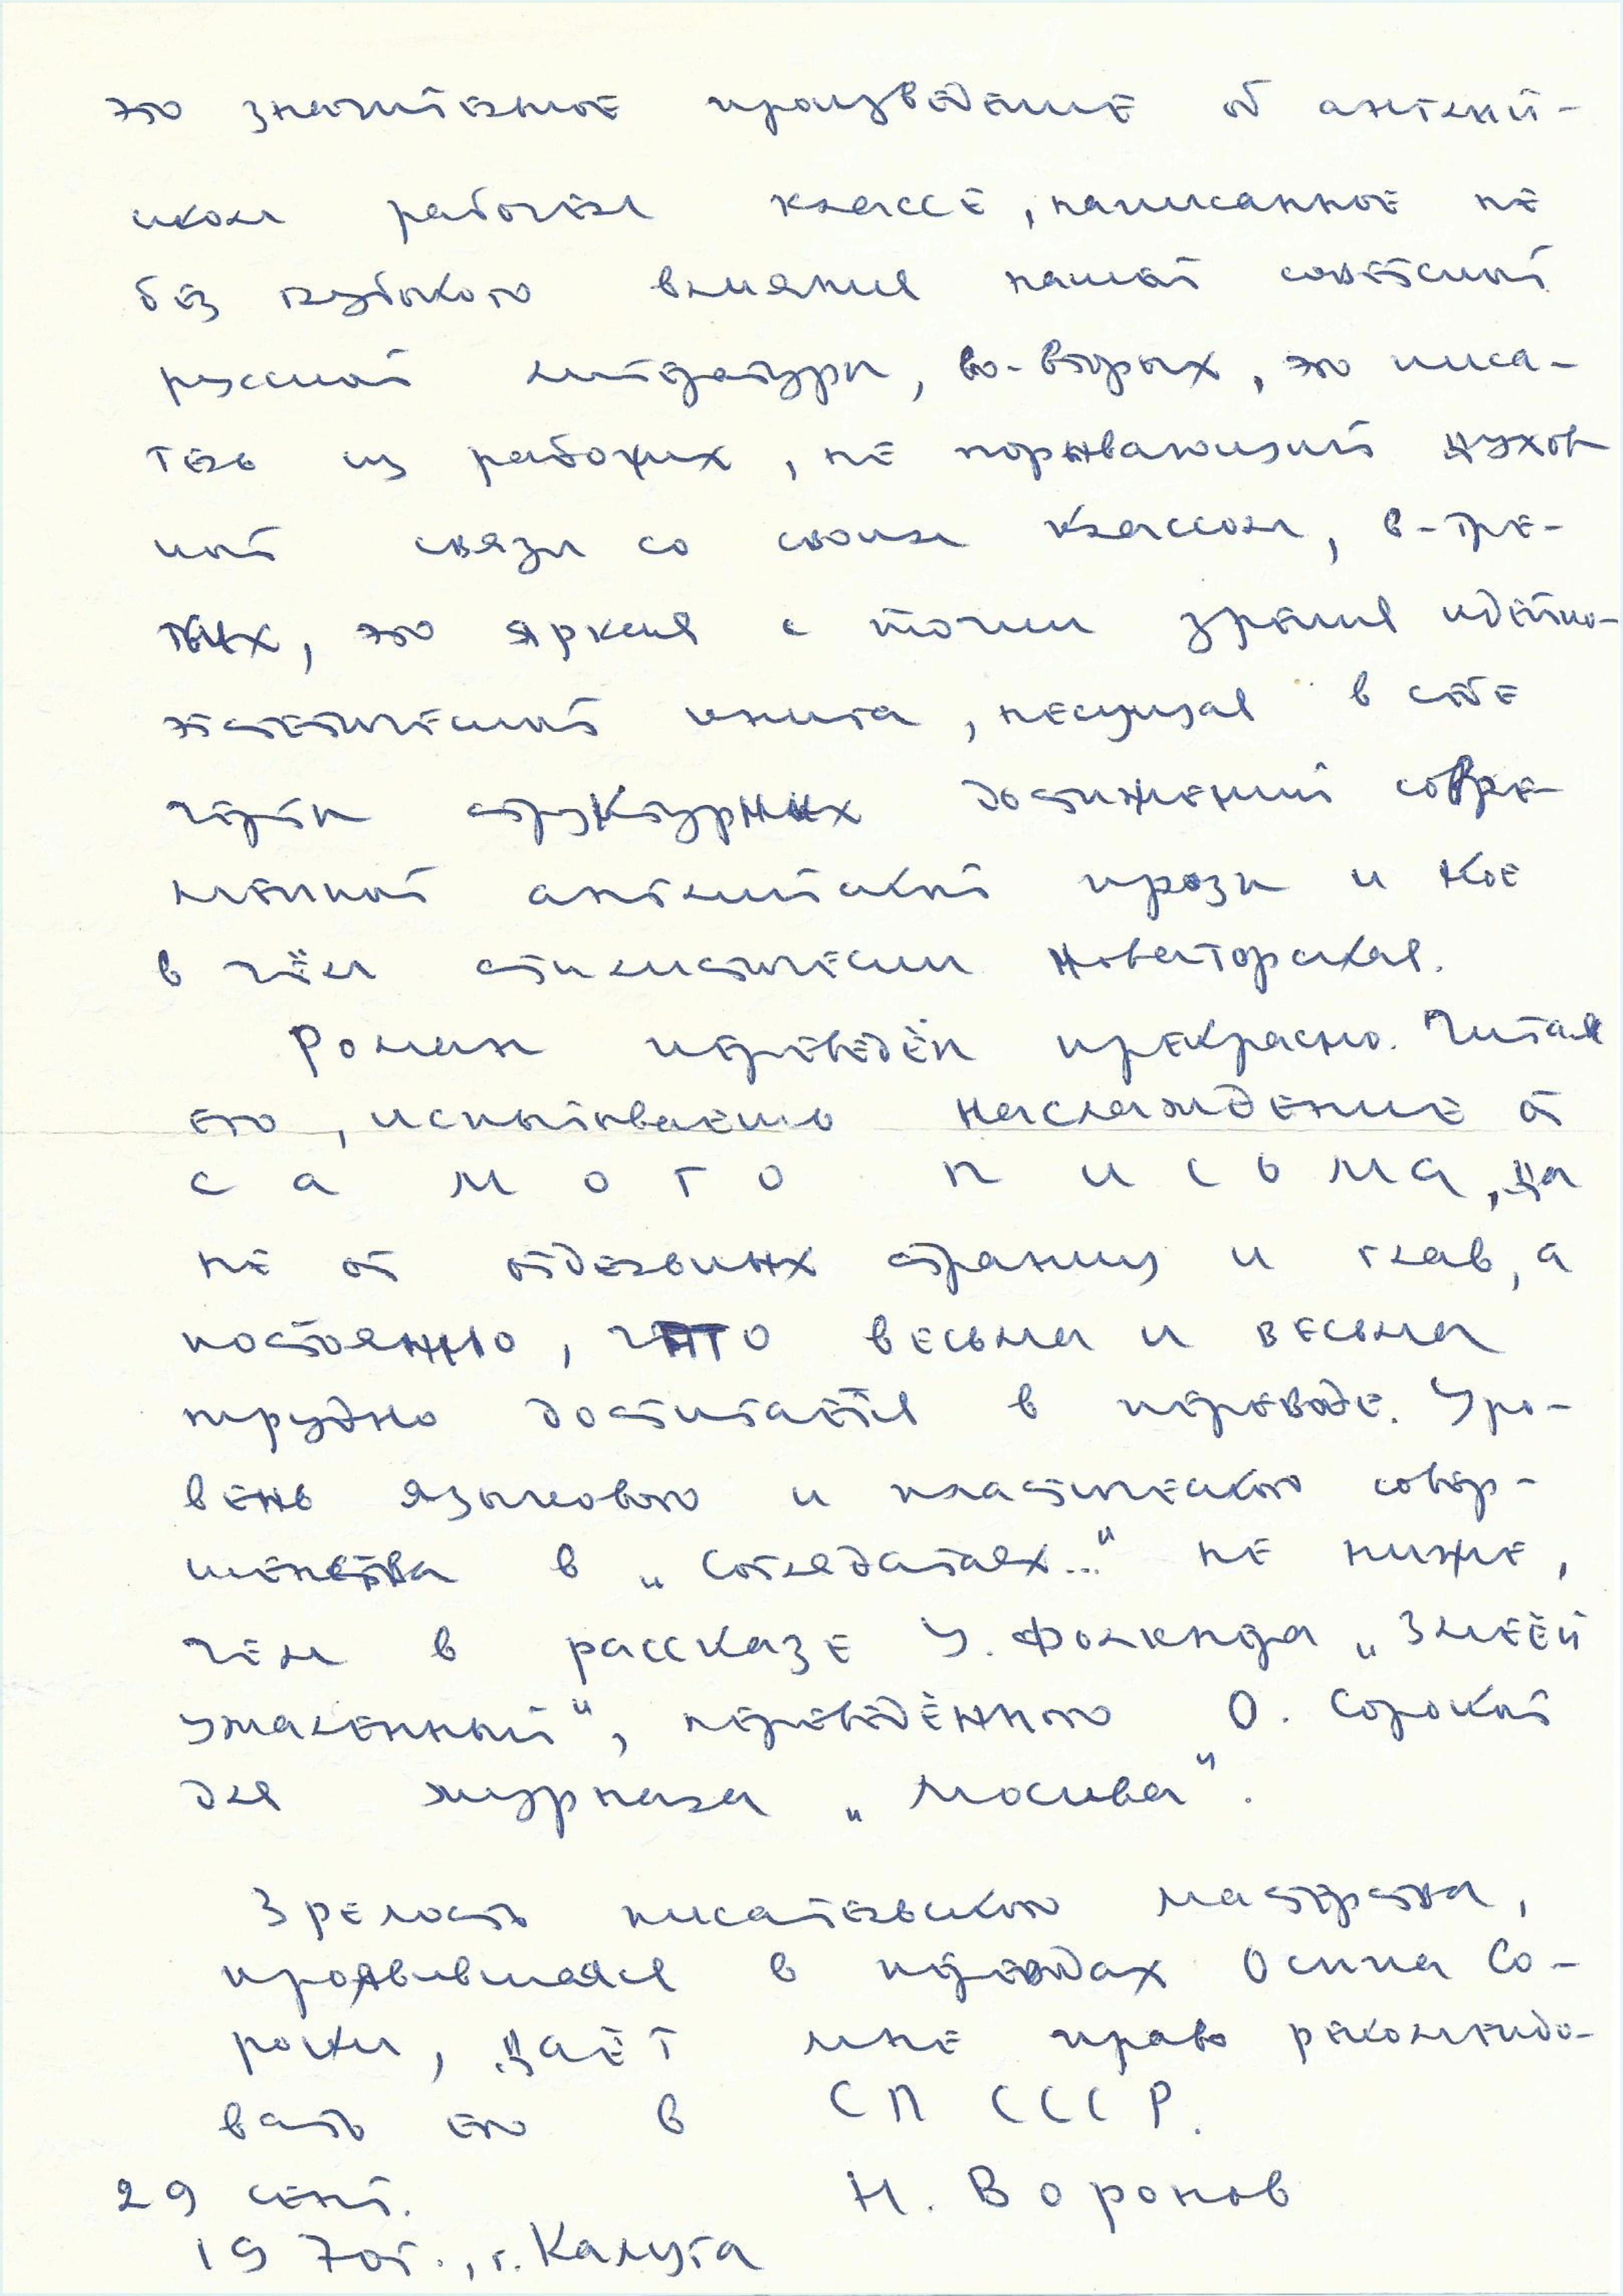 это значительное произведение об англий-
ском рабочем классе, написанное не
без глубокого влияния нашей советской
русской литературы, во-вторых, это писа-
тель из рабочих, не порывающий духов-
ной связи со своим классом, в-тре-
тьих, это яркая с точки зрения идейно-
эстетической книга, несущая в себе
черты структурных достижений совре-
менной английской прозы и кое
в чём стилистически новаторская.
Роман переведён прекрасно. Читая
его, испытываешь наслаждение от
с а м о г о п и с ь м а, да
не от отдельных страниц и глав, а
постоянно, что весьма и весьма
трудно достигается в переводе. Уро-
вень языкового и пластического совер-
шенства в „Соглядатаях..." не ниже,
чем в рассказе У. Фолкнера „Змеёй
ужаленный", переведённого О. Сорокой
для журнала „Москва".
Зрелость писательского мастерства,
проявившаяся в переводах Осипа Со-
роки, даёт мне право рекомендо-
вать его в СП СССР.
29 сент. Н. Воронов
1970г., г. Калуга